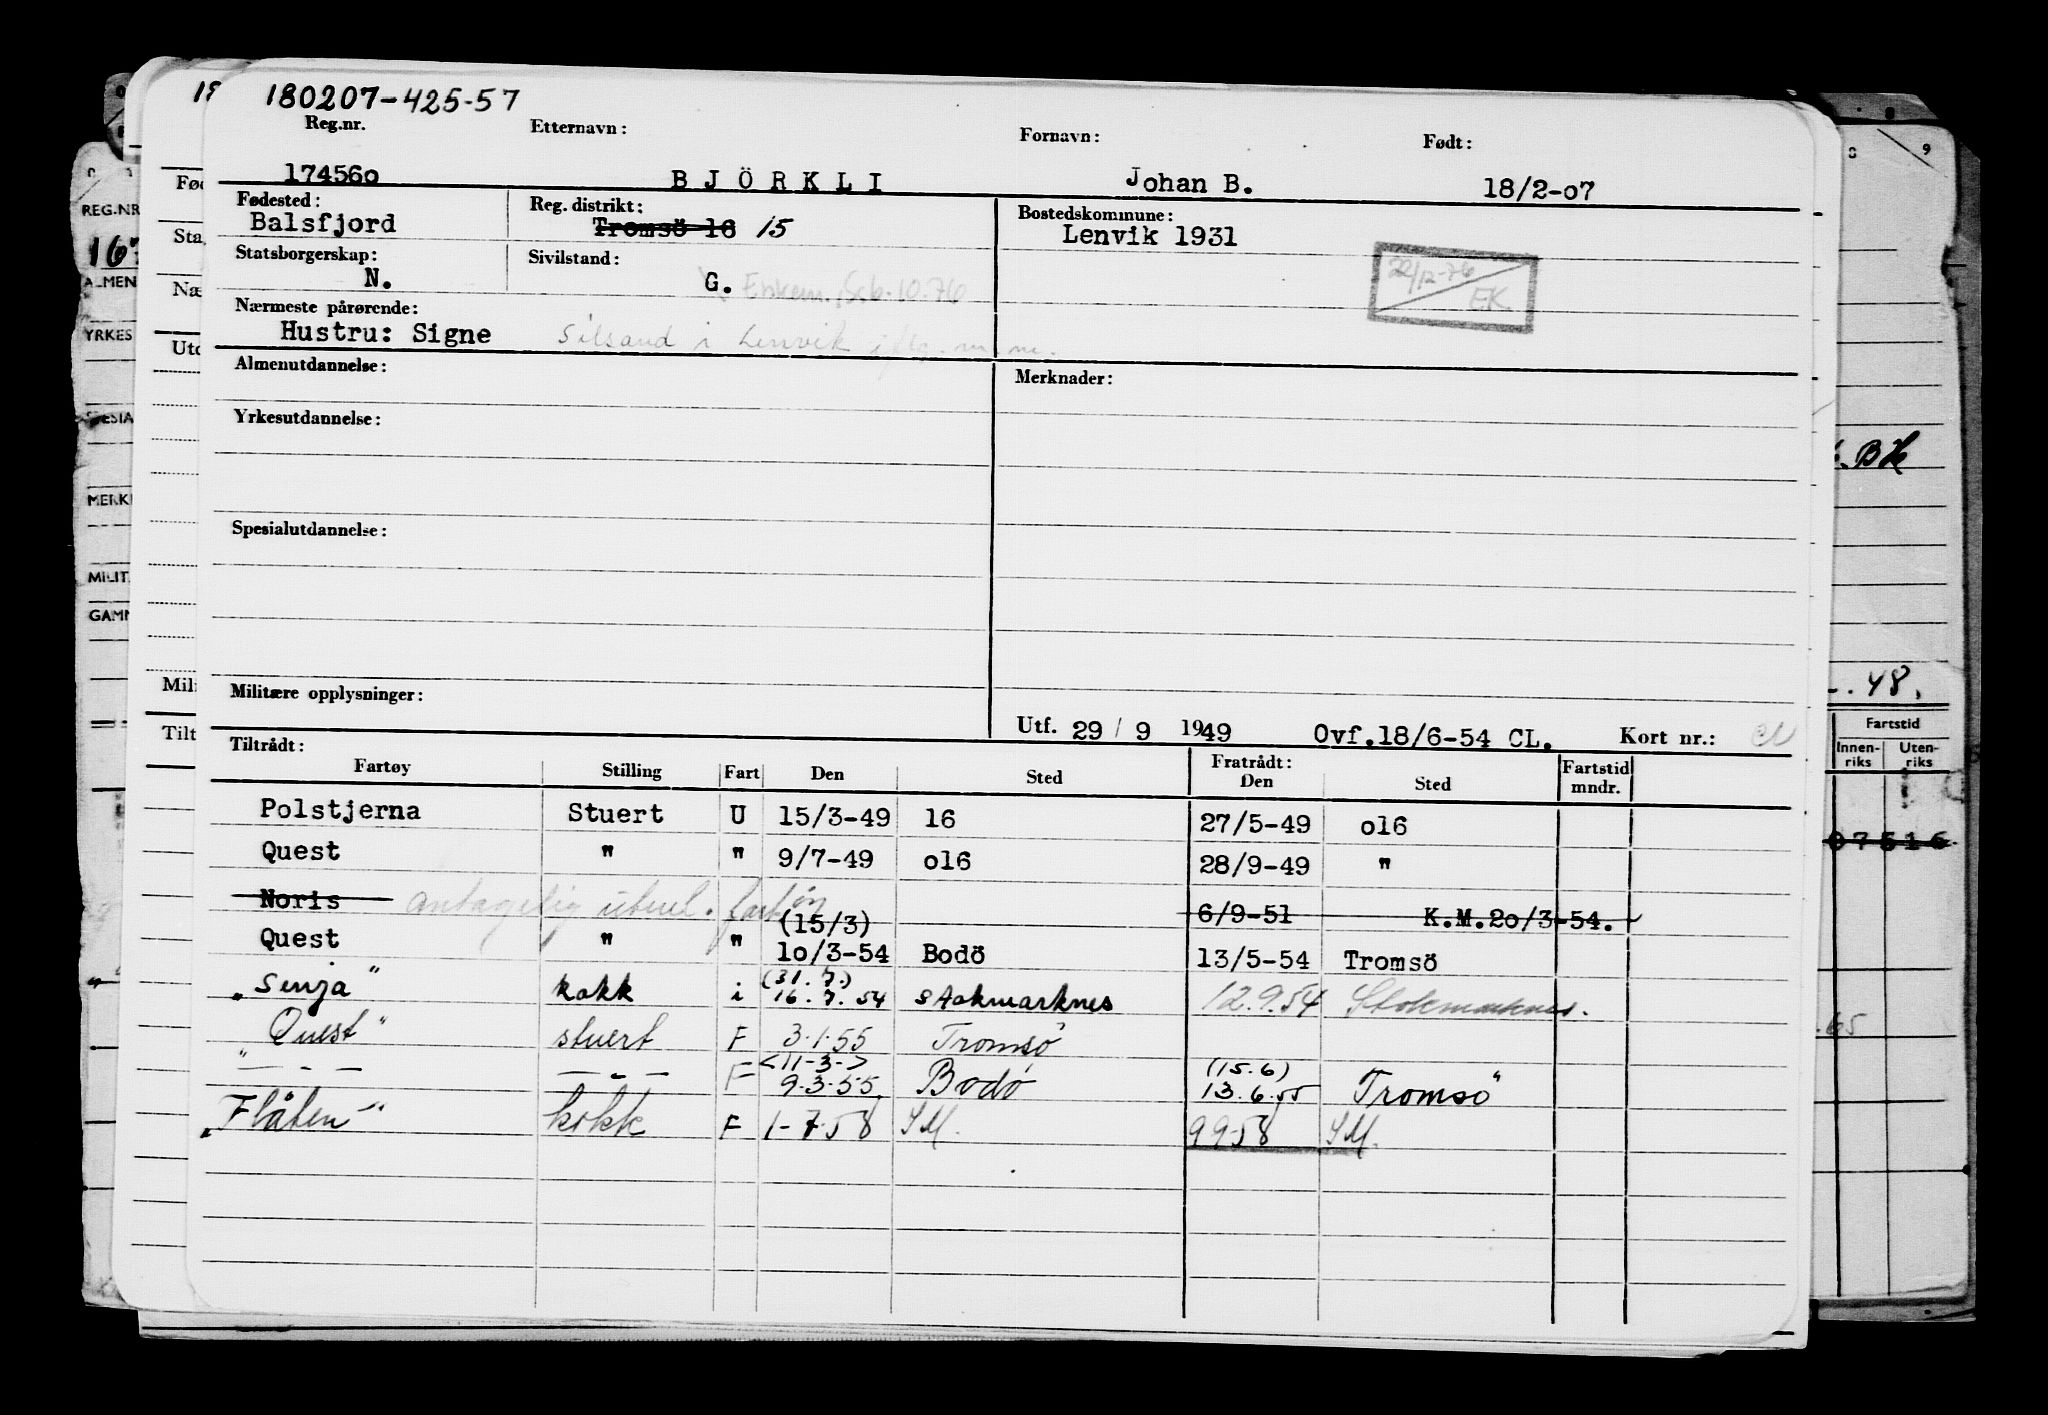 180207-425-57
Reg.nr. Etternavn: Fornavn: Født:
174560 BJÖRKLI Johan B. 18/2-07
Fødested: Reg. distrikt: Bostedskommune:
Balsfjord Tromsö 16 15 Lenvik 1931
Statsborgerskap: Sivilstand:
N. G. Enkem. 10.76
22/12-76
EK
Nærmeste pårørende:
Hustru: Signe Silsand i Lenvik
Almenutdannelse: Merknader:
Yrkesutdannelse:
Spesialutdannelse:
Militære opplysninger:
Utf. 29 / 9 1949 Ovf.18/6-54 CL. Kort nr.:
Tiltrådt: Fratrådt:
Fartøy Stilling Fart Den Sted Den Sted Fartstid mndr.
Polstjerna Stuert U 15/3-49 16 27/5-49 o16
Quest " " 9/7-49 o16 28/9-49 "
Noris antagelig utenl. fartøy 6/9-51 K.M.20/3-54.
(15/3)
Quest " " 10/3-54 Bodö 13/5-54 Tromsö
(31.7.)
"Senja" kokk i 16.7.54 Stokmarknes 12.9.54 Stokmarknes.
"Quest" stuert F 3.1.55 Tromsö
<11-3-> (15.6)
" - - - - - - F 9.3.55. Bodö 13.6.55 Tromsö
"Flåten" kokk F 1-7-58 SM. 9958 SM.
REG.NR
ALMEN
YRKES
SPESIA
MERK
MILIT
GAMM
9
BH
48.
Fartstid
Innen-riks Uten-riks
07516
65